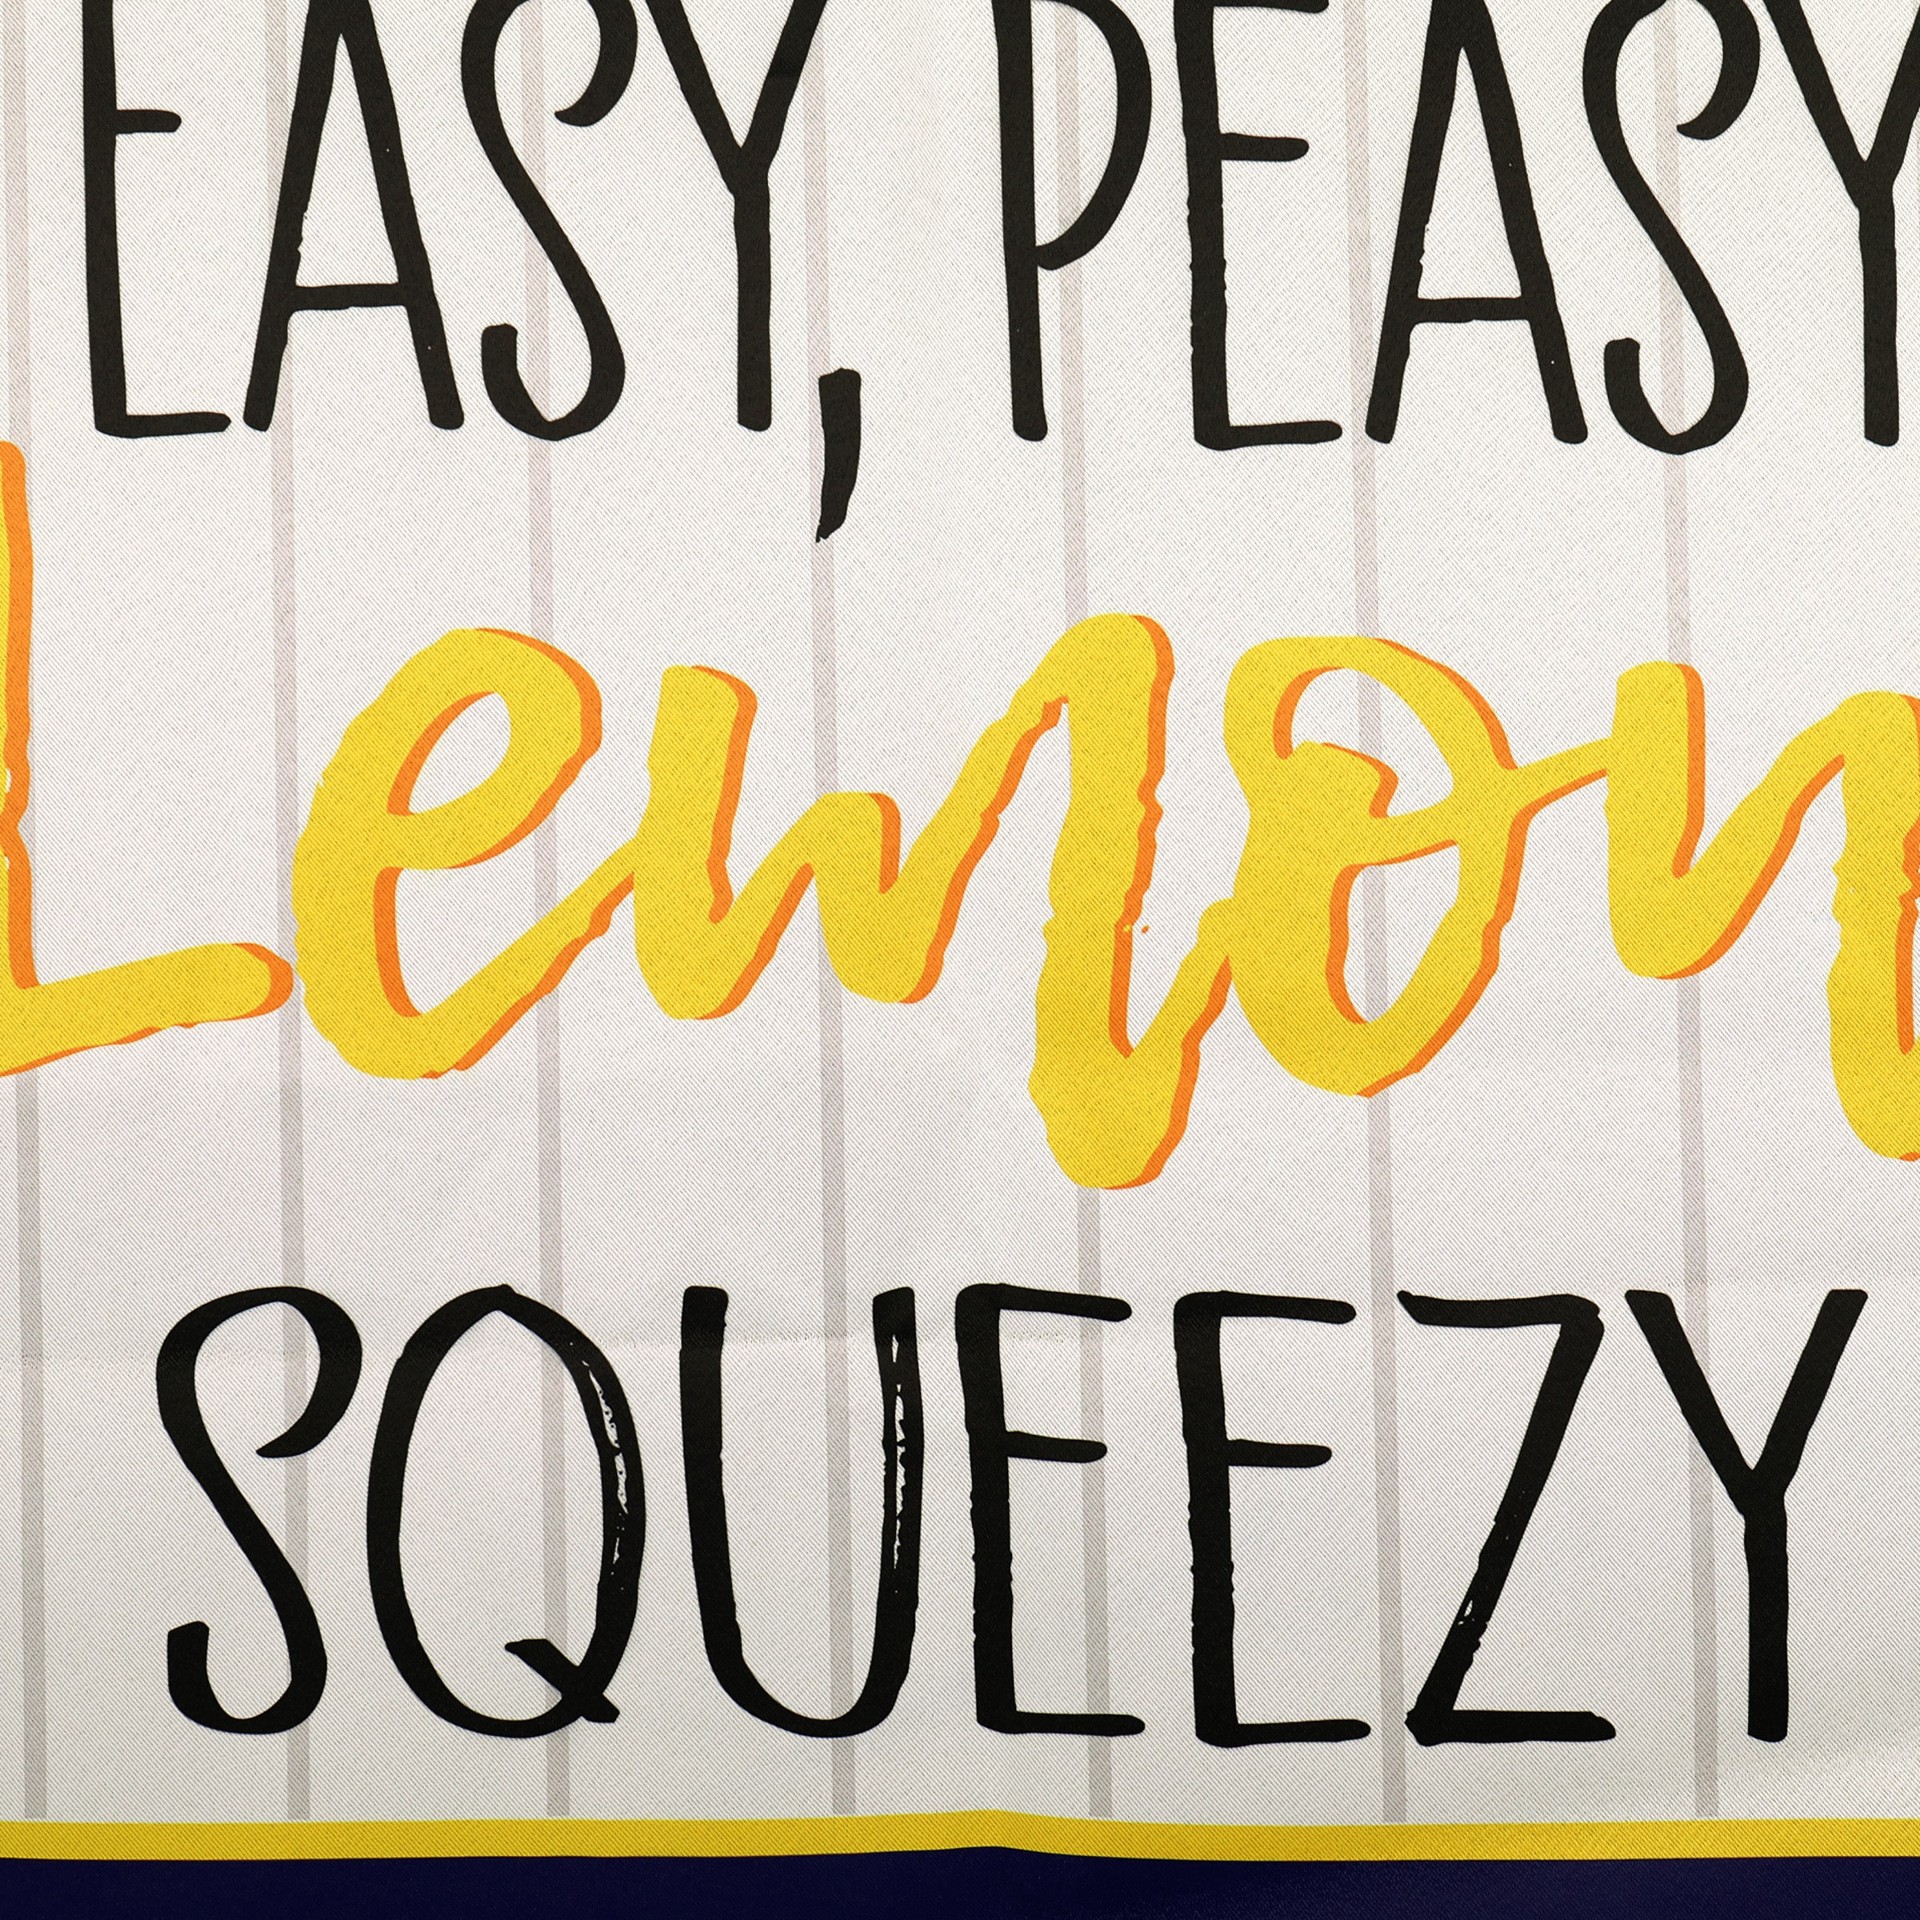 EASY, PEASY
Lemon
SQUEEZY